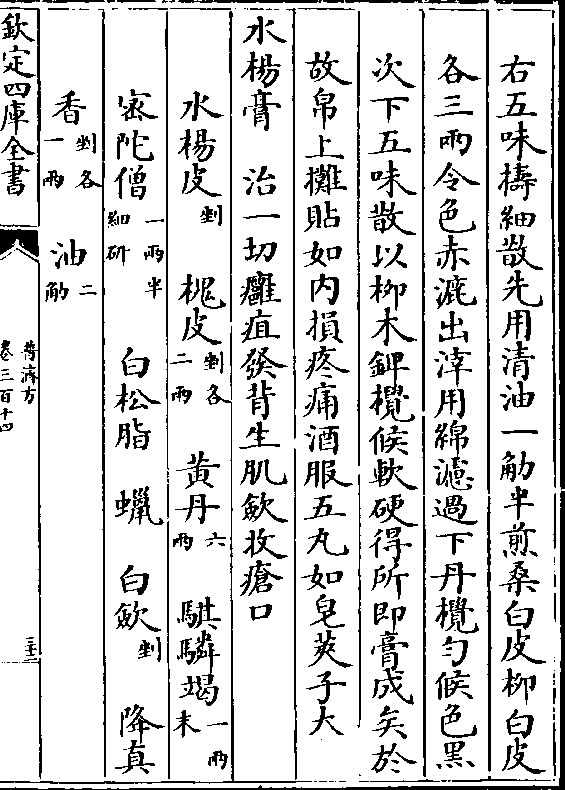 右五味擣細散先用清油一觔半煎桑白皮柳白皮
各三兩令色赤漉出滓用綿濾過下丹攪勻候色黑
次下五味散以柳木鎞攪候軟硬得所即膏成矣於
故帛上攤貼如内損疼痛酒服五丸如皂莢子大
水楊膏　治一切癰疽發背生肌歛收瘡口
水楊皮剉　槐皮剉各二兩　黄丹六兩　騏驎竭一兩末
宻陀僧一兩半細研　白松脂　蠟　白歛剉　降真
香剉各一兩　油二觔
欽定四庫全書
普濟方
卷三百十四